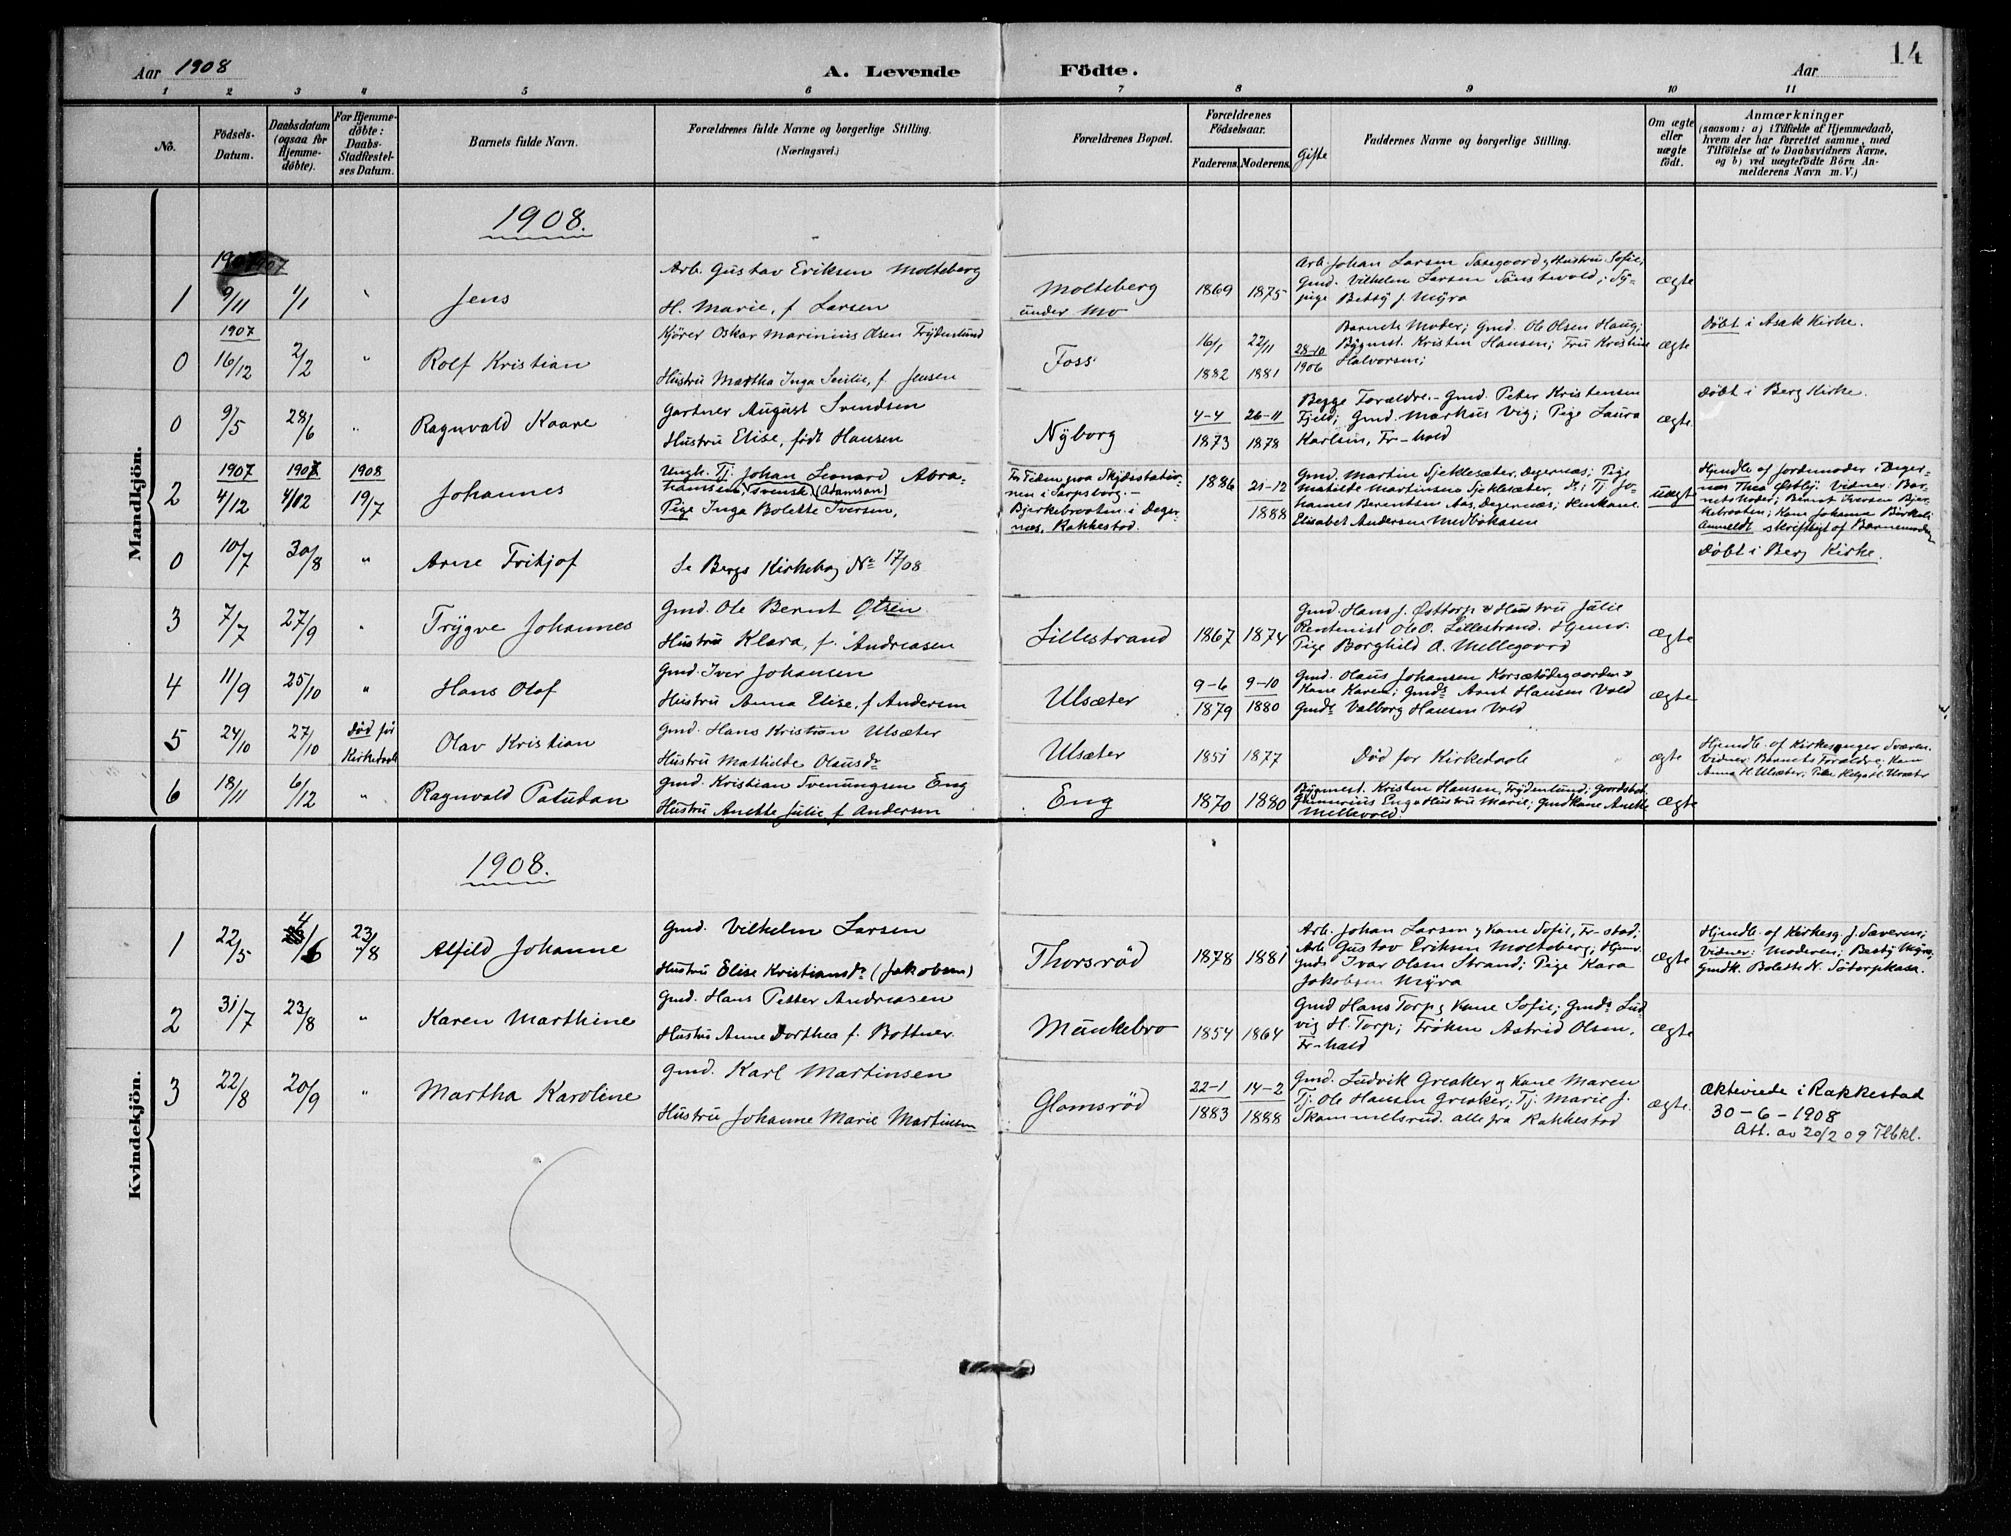 14
Aar 1908
A. Levende Födte.
Aar
1 2 3 4 5 6 7 8 9 10 11
Nö.
Födsels-Datum.
Daabsdatum (ogsaa for Hjemme-döbte).
For Hjemme-döbte: Daabs-Stadfæstel-ses Datum.
Barnets fulde Navn.
Forældrenes fulde Navne og borgerlige Stilling.
(Næringsvei.)
Forældrenes Bopæl.
Forældrenes Födselsaar.
Faderens. Moderens.
Gifte
Faddernes Navne og borgerlige Stilling.
Om ægte eller uægte födt.
Anmærkninger
(saasom: a) i Tilfælde af Hjemmedaab,
hvem der har forrettet samme, med
Tilföielse af to Daabsvidners Navne,
og b) ved uægtefödte Börn An-
melderens Navn m. V.)
Mandkjön.
1908.
1907
1 9/11 1/1 Jens
Arb. Gustav Eriksen Molteberg
H. Marie, f. Larsen
Molteberg
under Mo
1869 1875
Arb. Johan Larsen & Hustru Sofie,
Gmd. Vilhelm Larsen
pige Betsy J. Myra
ægte
1907
0 16/12 2/2 " Rolf Kristian
Kjører Oskar Marinius Olsen Frydenlund
Hustru Martha Inga Secilie, f. Jensen
Foss
16/1 1882 22/11 1881
28-10 1906
Barnets Moder; Gmd. Ole Olsen Haug;
Bygmest. Kristen Hansen; Fru Kristine
Halvorsen;
ægte
Døbt i Asak Kirke.
0 9/5 28/6 " Ragnvald Kaare
Gartner August Svendsen
Hustru Elise, født Hansen
Nyborg
4-4 1873 26-11 1878
Begge Forældre. Gmd. Peter Kristensen
Fjeld; Gmd. Markus Vig; Pige Laura
Karlsen, Fr-hald
ægte
Døbt i Berg Kirke.
1907 1907 1908
2 4/12 4/02 19/7 Johannes
Ungk. Tj. Johan Leonard Abra-
hamsen, svensk (Adamson)
Pige Inga Bolette Iversen,
For Tiden paa Skydsstatio-
nen i Sarpsborg.
Bjerkebraaten i Deger-
næs, Rakkestad.
1886 21-12 1888
Gmd. Martin Sjeklesæter, Degernæs; Pige
Matilde Martinsen Sjeklesæter, Tj. Jo-
hannes Berentsen Aas, Degernæs;
Elisabet Andersen
uægte
Hjmdb. af Jordemoder i Deger-
næs Thea Østby. Vidner: Bar-
nets Moder; Bernt Iversen Bjer-
kebraaten; Kone Johanna
Anmeldt skriftligt af Barnemoderen
0 10/7 30/8 " Arne Fritjof
Se Bergs Kirkebog No 17/08
Døbt i Berg Kirke.
3 7/7 27/9 " Trygve Johannes
Gmd. Ole Bernt Olsen
Hustru Klara, f. Andreasen
Lillestrand
1867 1874
Gmd. Hans J. Østtorp & Hustru Julie
Rentenist Ole O. Lillestrand.
Pige Borghild A. Mellegaard
ægte
4 11/9 25/10 " Hans Olaf
Gmd. Iver Johansen
Hustru Anna Elise, f. Andersen
Ulsæter
9-6 1879 9-10 1880
Gmd. Olaus Johansen Korsætødegaarden &
Kone Karen; Gmds. Arnt Hansen Vold
Gmds. Valborg Hansen Vold
ægte
5 24/10 27/10 Død før Kirkedaab Olav Kristian
Gmd. Hans Kristian Ulsæter
Hustru Mathilde Olausdr
Ulsæter
1851 1877
Død før Kirkedaab
ægte
Hjmdb. af Kirkesanger Sværen.
Vidner: Barnets Forældre; Kone
Anna H. Ulsæter, Pike Helga H. Ulsæter
6 18/11 6/12 " Ragnvald
Gmd. Kristian Svenungsen Eng
Hustru Anette Julie f. Andersen
Eng
1870 1880
Bygmest. Kristen Hansen, Frydenlund; Gaardsbest.
Gunnerius Eng & Hustru Marie; Gmdkone Anette
Mellevold.
ægte
Kvindekjön.
1908.
1 22/5 4/6 23/8 Alfild Johanne
Gmd. Vilhelm Larsen
Hustru Elise Kristiansdr (Jakobsen)
Thorsrød
1878 1881
Arb. Johan Larsen & Kone Sofie, Fr-stad;
Arb. Gustav Eriksen Molteberg;
Gmds Ivar Olsen Strand; Pige Kara
Jakobsen Myra
ægte
Hjmdb. af Kirkesg. J. Sæveren;
Vidner: Moderen; Betsy Myra;
Gmdk. Bolette N. Søtorpkasa.
2 31/7 23/8 " Karen Marthine
Gmd. Hans Petter Andreasen
Hustru Anne Dorthea f. Bottner
Munkebro
1854 1864
Gmd Hans Torp & Kone Sofie; Gmds Lud-
vig H. Torp; Frøken Astrid Olsen,
Fr-hald
ægte
3 22/8 20/9 " Martha Karoline
Gmd. Karl Martinsen
Hustru Johanne Marie Martinsen
Glomsrød
22-1 1883 14-2 1888
Gmd. Ludvik Greaker & Kone Maren
Tj. Ole Hansen Greaker; Tj. Marie J.
Skammelsrud. alle fra Rakkestad
ægte.
Ækteviede i Rakkestad
30-6-1908
Att. av 20/2 09